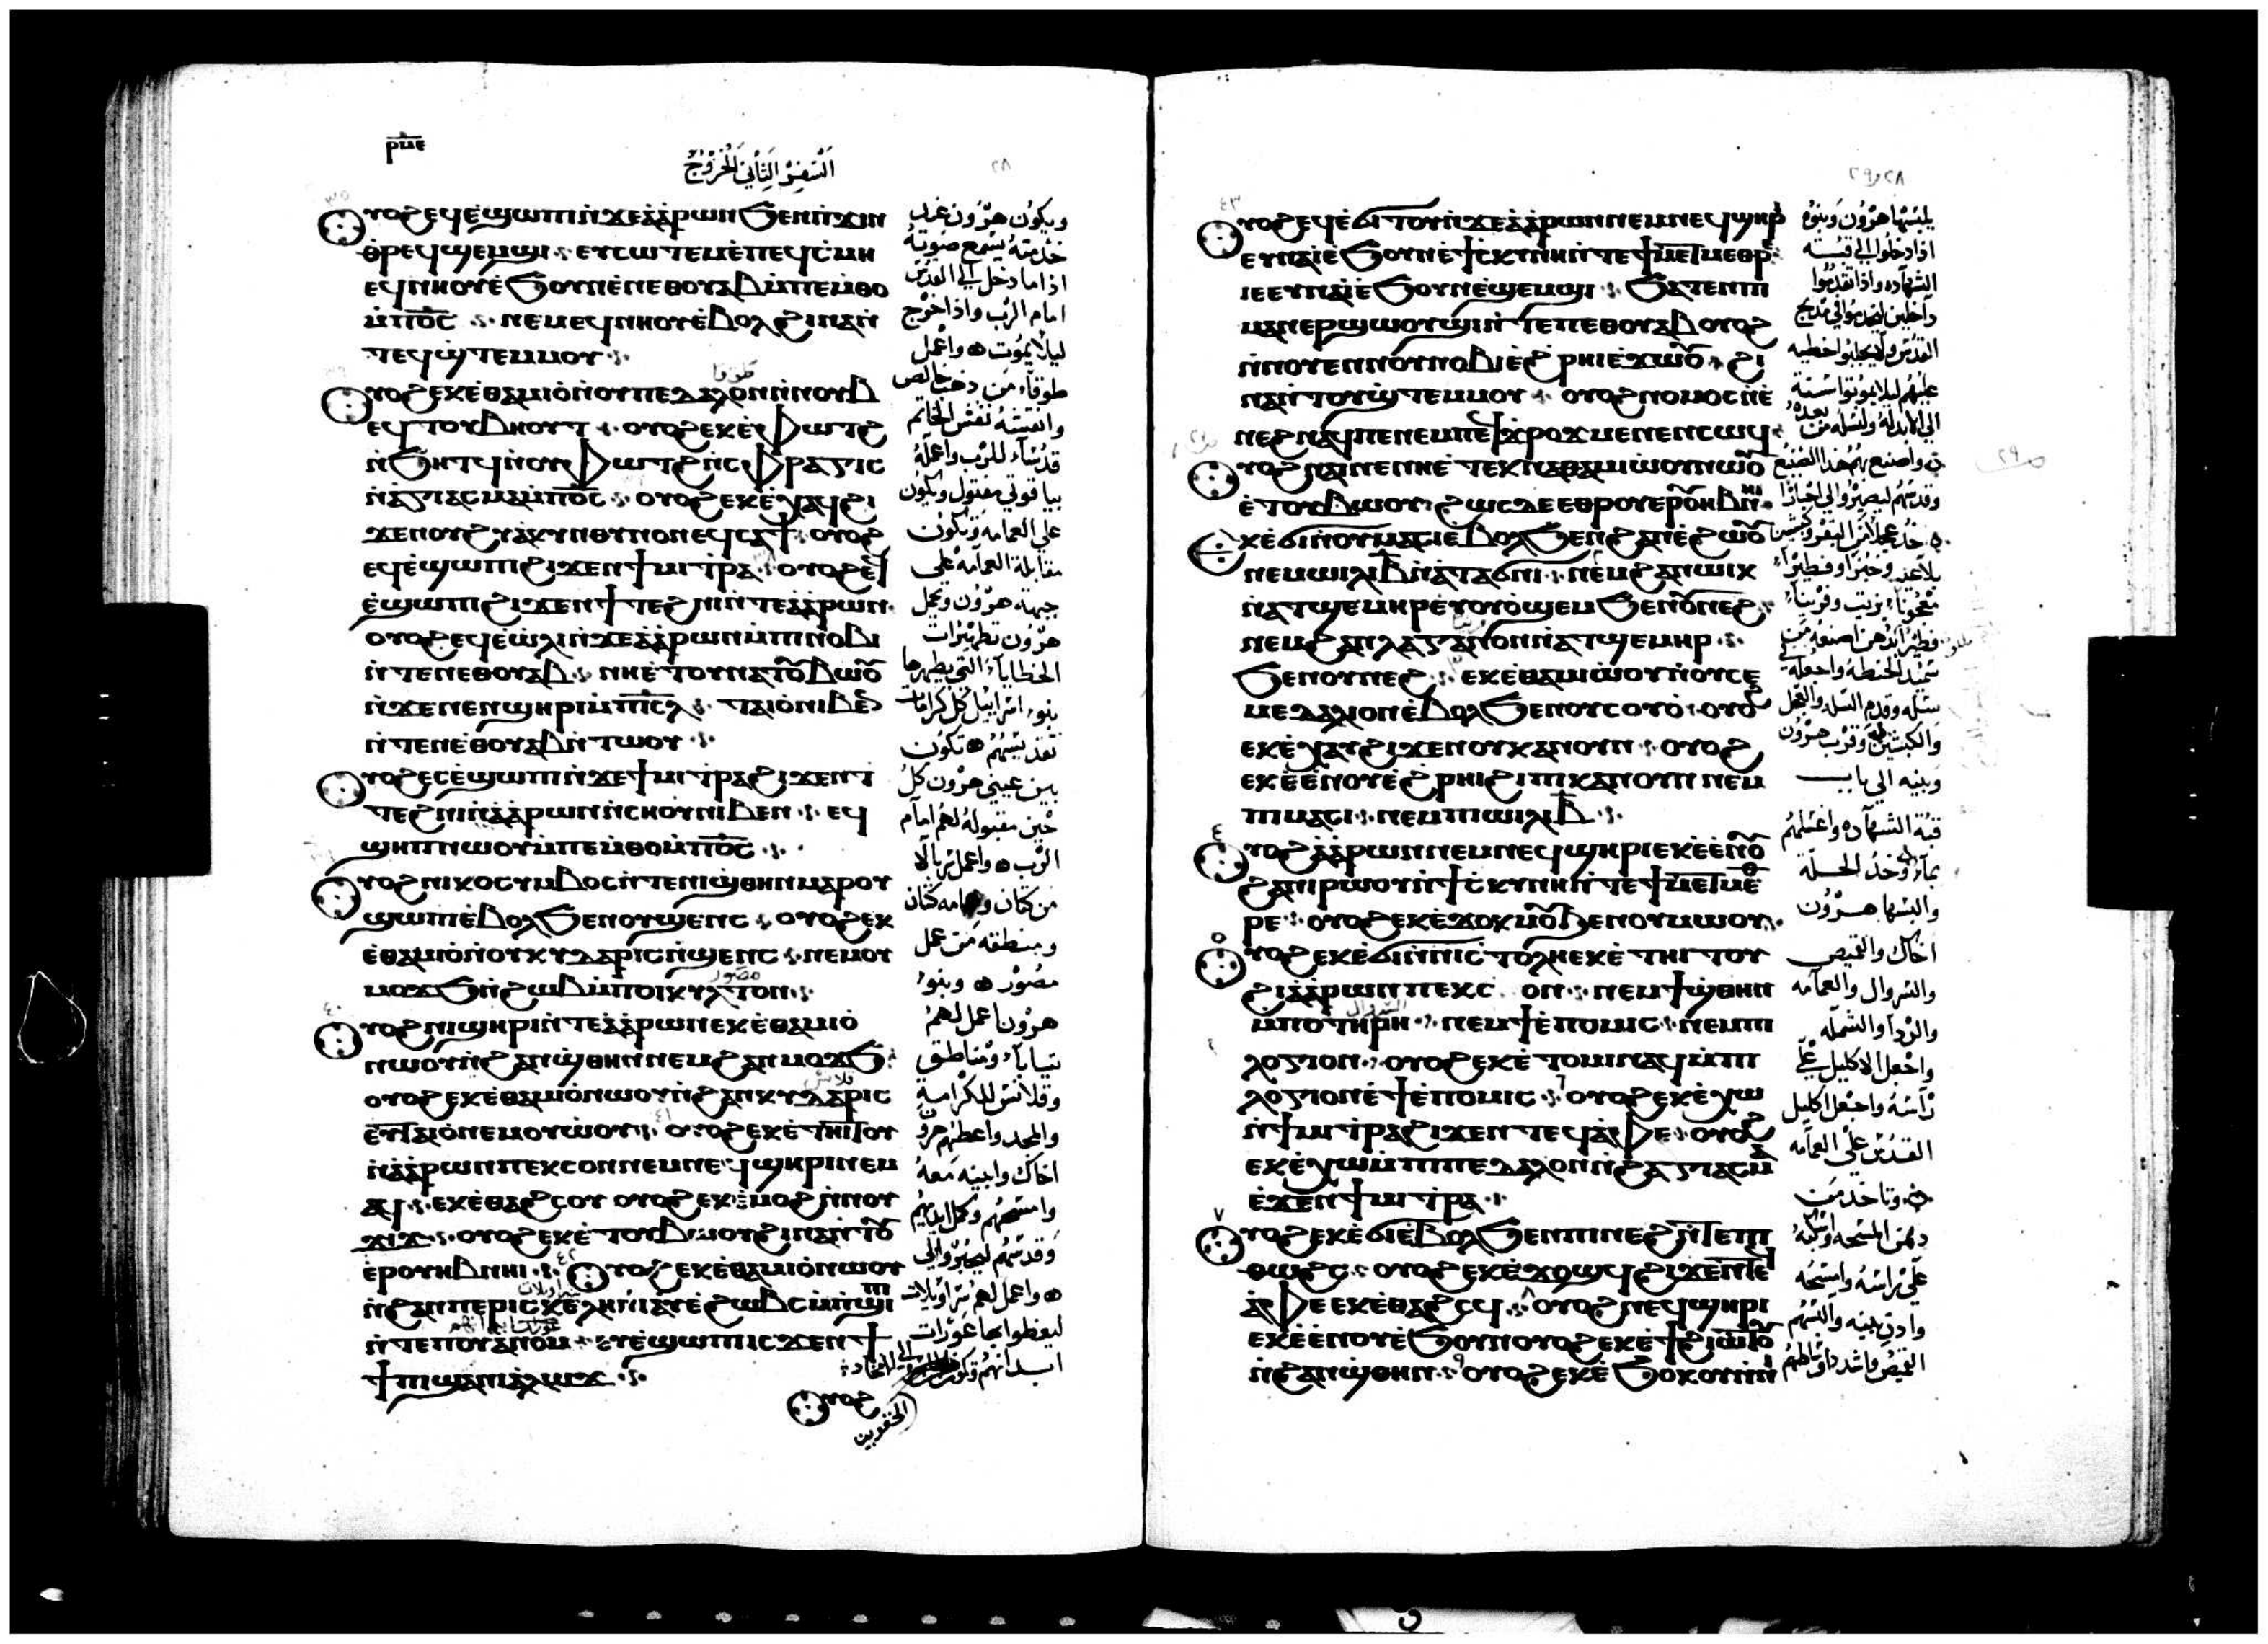 ⲣⲙⲉ
السفر الثاني الخروج
ⲟⲩⲟϩ ⲉϥⲉ̀ϣⲱⲡⲓ ⲛ̀ϫⲉ ⲁ̀ⲁ̀ⲣⲱⲛ ϧⲉⲛ ⲡ̀ϫⲓⲛ
ⲑⲣⲉϥϣⲉⲙϣⲓ ⲉⲩⲥⲱⲧⲉⲙ ⲉ̀ⲡⲉϥϧ̀ⲣⲱⲟⲩ
ⲉϥⲛⲏⲟⲩ ⲉ̀ϧⲟⲩⲛ ⲉ̀ⲡⲉⲑⲟⲩⲁⲃ ⲙ̀ⲡⲉⲙⲑⲟ
ⲙ̀ⲡⲟ̅ⲥ̅ ⲛⲉⲙ ⲉϥⲛⲏⲟⲩ ⲉ̀ⲃⲟⲗ ϩⲓⲛⲁ ⲛ̀
ⲧⲉϥϣ̀ⲧⲉⲙⲙⲟⲩ
ⲟⲩⲟϩ ⲉⲕⲉ̀ⲑⲁⲙⲓⲟ̀ ⲛ̀ⲟⲩⲡⲉⲇⲁⲗⲟⲛ ⲛ̀ⲛⲟⲩⲃ
ⲉϥⲧⲟⲩⲃⲏⲟⲩⲧ ⲟⲩⲟϩ ⲉⲕⲉ̀ⲫⲱⲧϩ
ⲛ̀ϧⲏⲧϥ ⲛ̀ⲟⲩⲫⲱⲧϩ ⲛ̀ⲥⲫⲣⲁⲅⲓⲥ
ⲛ̀ⲁ̀ⲅⲓⲁⲥⲙⲁ ⲙ̀ⲡⲟ̅ⲥ̅ ⲟⲩⲟϩ ⲉⲕⲉ̀ⲭⲁϥ ϩⲓ
ϫⲉⲛ ⲟⲩϩⲩⲁ̀ⲕⲩⲛⲑⲩⲛⲟⲛ ⲉϥⲥⲁϯ ⲟⲩⲟϩ
ⲉϥⲉ̀ϣⲱⲡⲓ ϩⲓϫⲉⲛ ϯⲙⲓⲧⲣⲁ ⲟⲩⲟϩ ⲉϥ
ⲉ̀ϣⲱⲡⲓ ϩⲓϫⲉⲛ ϯⲧⲉϩⲛⲓ ⲛ̀ⲧⲉ ⲁ̀ⲁ̀ⲣⲱⲛ
ⲟⲩⲟϩ ⲉϥⲉ̀ⲱ̀ⲗⲓ ⲛ̀ϫⲉ ⲁ̀ⲁ̀ⲣⲱⲛ ⲙ̀ⲡⲓⲛⲟⲃⲓ
ⲛ̀ⲧⲉ ⲛⲉⲑⲟⲩⲁⲃ ⲛⲏ ⲉ̀ⲧⲟⲩⲛⲁⲧⲟⲩⲃⲱⲟⲩ
ⲛ̀ϫⲉ ⲛⲉⲛϣⲏⲣⲓ ⲙ̀ⲡⲓⲥⲗ ⲧⲁⲓⲟ̀ ⲛⲓⲃⲉⲛ
ⲛ̀ⲧⲉ ⲛⲉ̀ⲑⲟⲩⲁⲃ ⲛ̀ⲧⲱⲟⲩ
ⲟⲩⲟϩ ⲉⲥⲉ̀ϣⲱⲡⲓ ⲛ̀ϫⲉ ϯⲙⲓⲧⲣⲁ ϩⲓϫⲉⲛ ϯ
ⲧⲉϩⲛⲓ ⲛ̀ⲁ̀ⲁ̀ⲣⲱⲛ ⲛ̀ⲥⲏⲟⲩ ⲛⲓⲃⲉⲛ ⲉϥ
ϣⲏⲡ ⲛⲱⲟⲩ ⲙ̀ⲡⲉⲙⲑⲟ ⲙ̀ⲡⲟ̅ⲥ̅
ⲟⲩⲟϩ ⲛⲓⲕⲟⲥⲩⲙⲃⲟⲥ ⲛ̀ⲧⲉ ⲛⲓϣ̀ⲑⲏⲛ ⲙⲁⲣⲟⲩ
ϣⲱⲡⲓ ⲉ̀ⲃⲟⲗ ϧⲉⲛ ⲟⲩϣⲉⲛⲥ ⲟⲩⲟϩ ⲉⲕ
ⲉ̀ⲑⲁⲙⲓⲟ̀ ⲛ̀ⲟⲩⲕⲩⲇⲁⲣⲓⲥ ⲛ̀ϣⲉⲛⲥ ⲛⲉⲙ ⲟⲩ
ⲙⲟϫϧ ⲛ̀ϩⲱⲃ ⲙ̀ⲡⲟⲓⲕⲩⲗⲧⲟⲛ
ⲟⲩⲟϩ ⲛⲓϣⲏⲣⲓ ⲛ̀ⲧⲉ ⲁ̀ⲁ̀ⲣⲱⲛ ⲉⲕⲉ̀ⲑⲁⲙⲓⲟ̀
ⲛⲱⲟⲩ ⲛ̀ϩⲁⲛϣ̀ⲑⲏⲛ ⲛⲉⲙ ϩⲁⲛⲙⲟϫϧ
ⲟⲩⲟϩ ⲉⲕⲉ̀ⲑⲁⲙⲓⲟ̀ ⲛⲱⲟⲩ ⲛ̀ϩⲁⲛⲕⲩⲇⲁⲣⲓⲥ
ⲉⲩⲧⲁⲓⲟ̀ ⲛⲉⲙ ⲟⲩⲱ̀ⲟⲩ ⲟⲩⲟϩ ⲉⲕⲉ̀ⲧⲏⲓⲧⲟⲩ
ⲛ̀ⲁ̀ⲁ̀ⲣⲱⲛ ⲡⲉⲕⲥⲟⲛ ⲛⲉⲙ ⲛⲉϥϣⲏⲣⲓ ⲛⲉⲙ
ⲁϥ ⲉⲕⲉ̀ⲑⲁϩⲥⲟⲩ ⲟⲩⲟϩ ⲉⲕⲉ̀ⲙⲟϩ ⲛ̀ⲛⲟⲩ
ϫⲓϫ ⲟⲩⲟϩ ⲉⲕⲉ̀ⲧⲟⲩⲃⲱⲟⲩ ϩⲓⲛⲁ ⲛ̀ⲧⲟⲩ
ⲉⲣⲟⲩⲏⲃ ⲛⲏⲓ ⲟⲩⲟϩ ⲉⲕⲉ̀ⲑⲁⲙⲓⲟ̀ ⲛⲱⲟⲩ
ⲛ̀ϩⲁⲛⲡⲉⲣⲓⲥⲕⲉⲗⲏ ⲛ̀ⲓⲁⲩ ⲉ̀ϩⲱⲃⲥ ⲙ̀ⲡϣⲓⲡⲓ
ⲛ̀ⲧⲉ ⲡⲟⲩⲁ̀ⲛⲟⲙ ⲉⲩⲉ̀ϣⲱⲡⲓ ⲓⲥϫⲉⲛ ϯ
ϯⲡⲓ ϣⲁ ⲛⲓⲁ̀ⲗⲱϫ
ⲟⲩⲟϩ
ويكون هرون عند
خدمته يسمع صوته
اذا ما دخل الي القدس
امام الرب واذا خرج
ليلا يموت واعمل
طوقا من ذهب خالص
وانقشه نقش الخاتم
قدسا للرب واعمله
على العمامه ويكون
مقابلة العمامه على
جبهة هرون ويحمل
هرون تطهيرات
الخطايا التي يطهرها
بنو اسرائيل كل كرامات
تقديسهم تكون
بين عيني هرون كل
حين مقبوله لهم امام
الرب واعمل سربالا
ومنطقه من عمل
مصور وبنو
هرون اعمل لهم
ثيابا ومناطق
وقلانس للكرامة
والمجد واعطهم هرون
اخاك وابنيه معه
وقدسهم ليصيروا الي
واعمل لهم سراويلات
ليغطوا بها عورات
الحقوين
ⲟⲩⲟϩ ⲉϥⲉ̀ϭⲓⲧⲟⲩ ⲛ̀ϫⲉ ⲁ̀ⲁ̀ⲣⲱⲛ ⲛⲉⲙ ⲛⲉϥϣⲏⲣⲓ
ⲉⲩⲛⲁⲓ̀ ⲉ̀ϧⲟⲩⲛ ⲉ̀ϯⲥ̀ⲕⲩⲛⲏ ⲛ̀ⲧⲉ ϯⲙⲉⲧⲙⲉⲑⲣⲉ
ⲓⲉ ⲉⲩⲛⲁⲓ̀ ⲉ̀ϧⲟⲩⲛ ⲉ̀ϣⲉⲙϣⲓ ϧⲁⲧⲉⲛ ⲡⲓ
ⲙⲁⲛⲉⲣϣⲱⲟⲩϣⲓ ⲛ̀ⲧⲉ ⲡⲉⲑⲟⲩⲁⲃ ⲟⲩⲟϩ
ⲛ̀ⲛⲟⲩⲉⲛ ⲛⲟⲩⲛⲟⲃⲓ ⲉ̀ϩⲣⲏⲓ ⲉ̀ϫⲱⲟⲩ ϩⲓ
ⲛⲁ ⲛ̀ⲧⲟⲩϣ̀ⲧⲉⲙⲙⲟⲩ ⲟⲩⲟϩ ⲛⲟⲙⲟⲥ ⲛ̀ⲉ̀
ⲛⲉϩ ⲛⲁϥ ⲡⲉ ⲛⲉⲙ ⲡⲉϥϫⲣⲟϫ ⲙⲉⲛⲉⲛⲥⲱϥ
ⲟⲩⲟϩ ⲛⲁⲓ ⲛⲉ ⲛⲏ ⲉ̀ⲧⲉⲕⲛⲁⲑⲁⲙⲓⲱ̀ⲟⲩ ⲛⲱⲟⲩ
ⲉ̀ⲧⲟⲩⲃⲱⲟⲩ ϩⲱⲥⲇⲉ ⲉⲑⲣⲟⲩⲉⲣⲟⲩⲏⲃ ⲛⲏⲓ
ⲉⲕⲉ̀ϭⲓ ⲛ̀ⲟⲩⲙⲁⲥⲓ ⲉ̀ⲃⲟⲗ ϧⲉⲛ ϩⲁⲛⲉ̀ϩⲱⲟⲩ
ⲛⲉⲙ ⲱⲓⲗⲓ ⲃ̅ ⲛ̀ⲁⲧⲁϭⲛⲓ ⲛⲉⲙ ϩⲁⲛⲱⲓⲕ
ⲛ̀ⲁⲧϣⲉⲙⲏⲣ ⲉ̀ⲩⲟⲩⲟ̀ϣⲉⲙ ϧⲉⲛ ⲟⲩⲛⲉϩ
ⲛⲉⲙ ϩⲁⲛⲗⲁⲅⲁⲛⲟⲛ ⲛ̀ⲁⲧϣⲉⲙⲏⲣ
ϧⲉⲛ ⲟⲩⲛⲉϩ ⲉⲕⲉ̀ⲑⲁⲙⲓⲱ̀ⲟⲩ ⲛ̀ⲟⲩⲥⲉ
ⲙⲉⲇⲁⲗⲓⲟⲛ ⲉ̀ⲃⲟⲗ ϧⲉⲛ ⲟⲩⲥⲟⲩⲟ̀ ⲟⲩⲟϩ
ⲉⲕⲉ̀ⲭⲁⲩ ϩⲓϫⲉⲛ ⲟⲩⲕⲁⲛⲟⲩⲛ ⲟⲩⲟϩ
ⲉⲕⲉ̀ⲉ̀ⲛⲟⲩ ⲉ̀ϩⲣⲏⲓ ϩⲓ ⲡⲓⲕⲁⲛⲟⲩⲛ ⲛⲉⲙ
ⲡⲓⲙⲁⲥⲓ ⲛⲉⲙ ⲡⲓⲱⲓⲗⲓ ⲃ̅
ⲟⲩⲟϩ ⲁ̀ⲁ̀ⲣⲱⲛ ⲛⲉⲙ ⲛⲉϥϣⲏⲣⲓ ⲉⲕⲉ̀ⲉ̀ⲛⲟⲩ
ϩⲁ ⲛⲓⲣⲱⲟⲩ ⲛ̀ϯⲥ̀ⲕⲩⲛⲏ ⲛ̀ⲧⲉ ϯⲙⲉⲧⲙⲉⲑ
ⲣⲉ ⲟⲩⲟϩ ⲉⲕⲉ̀ϫⲟⲕⲙⲟⲩ ϧⲉⲛ ⲟⲩⲙⲱⲟⲩ
ⲟⲩⲟϩ ⲉⲕⲉ̀ϭⲓ ⲛ̀ⲛⲓⲥⲧⲟⲗⲏ ⲉⲕⲉ̀ⲧⲏⲓⲧⲟⲩ
ϩⲓ ⲁ̀ⲁ̀ⲣⲱⲛ ⲡⲉⲕⲥⲟⲛ ⲛⲉⲙ ϯϣ̀ⲑⲏⲛ
ⲙ̀ⲡⲟⲧⲏⲣⲏ ⲛⲉⲙ ϯⲉ̀ⲡⲟⲙⲓⲥ ⲛⲉⲙ ⲡⲓ
ⲗⲟⲅⲓⲟⲛ ⲟⲩⲟϩ ⲉⲕⲉ̀ⲧⲟⲙⲓ ⲛⲁϥ ⲙ̀ⲡⲓ
ⲗⲟⲅⲓⲟⲛ ⲉ̀ϯⲉ̀ⲡⲟⲙⲓⲥ ⲟⲩⲟϩ ⲉⲕⲉ̀ⲭⲱ
ⲛ̀ϯⲙⲓⲧⲣⲁ ϩⲓϫⲉⲛ ⲧⲉϥⲁ̀ⲫⲉ ⲟⲩⲟϩ
ⲉⲕⲉ̀ⲭⲱ ⲙ̀ⲡⲓⲡⲉⲇⲁⲗⲟⲛ ⲛ̀ϩⲁⲅⲓⲁⲥⲙⲁ
ⲉ̀ϫⲉⲛ ϯⲙⲓⲧⲣⲁ
ⲟⲩⲟϩ ⲉⲕⲉ̀ϭⲓ ⲉ̀ⲃⲟⲗ ϧⲉⲛ ⲡⲓⲛⲉϩ ⲛ̀ⲧⲉ ⲡⲓ
ⲑⲱϩⲥ ⲟⲩⲟϩ ⲉⲕⲉ̀ϫⲟϣϥ ϩⲓϫⲉⲛ ⲧⲉϥ
ⲁ̀ⲫⲉ ⲉⲕⲉ̀ⲑⲁϩⲥϥ ⲟⲩⲟϩ ⲛⲉϥϣⲏⲣⲓ
ⲉⲕⲉ̀ⲉ̀ⲛⲟⲩ ⲉ̀ϧⲟⲩⲛ ⲟⲩⲟϩ ⲉⲕⲉ̀ϯ ϩⲓⲱⲧⲟⲩ
ⲛ̀ϩⲁⲛϣ̀ⲑⲏⲛ ⲟⲩⲟϩ ⲉⲕⲉ̀ϧⲟⲕⲟⲩ ⲛ̀ⲛⲓ
يلبسها هرون وبنوه
اذا دخلوا الي قبة
الشهاده واذا تقدموا
القدس ولا يجلبوا خطيه
عليهم ليلا يموتوا سنة
واصنع بهم هذا الصنيع
وقدسهم ليصيروا الي احبارا
خذ عجلا من البقر وكبشين
بلا عيب وخبزا فطيرا
سميد الحنطه واجعله
سله وقدم السله والعجل
والكبشين وقرب هرون
وبنيه الي باب
قبة الشهاده واغسلهم
بماء وخذ الحلة
والبسها هرون
اخاك والقميص
والسروال والعمامه
والردا والشمله
واجعل الاكليل على
راسه واجعل اكليل
القدس على العمامه
وتاخذ من
دهن المسحه واسكبه
على راسه وامسحه
وادن بنيه والبسهم